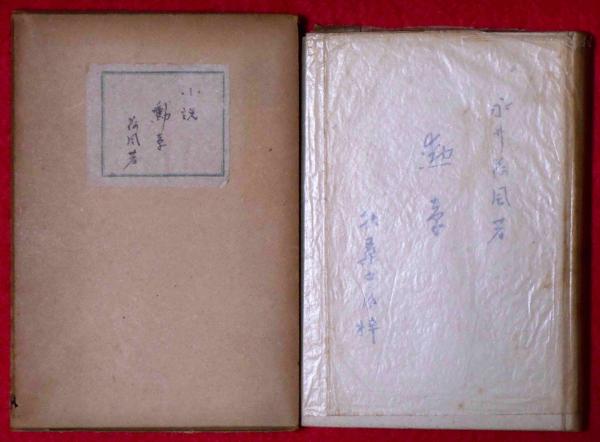 小説
勲章
荷風著
永井荷風著
勲章
扶桑書房梓